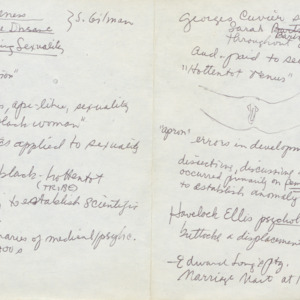 ness
Insane
ing Sexuality
S. Gilman
ion"
s, ape-like, sexuality
black woman"
es applied to sexuality
black - hottentot
(TRIBE)
to establish scientific
naries of medical/psychic.
00s
Georges Cuvier
Sarah
throughout
And - paid to se
"Hottentot Venus"
"apron"
errors in developm
dissections, discussing
occurred primarily on
to establish anomaly
Havelock Ellis psychol
buttocks a displacement
- Edward Long
Marriage Visit at